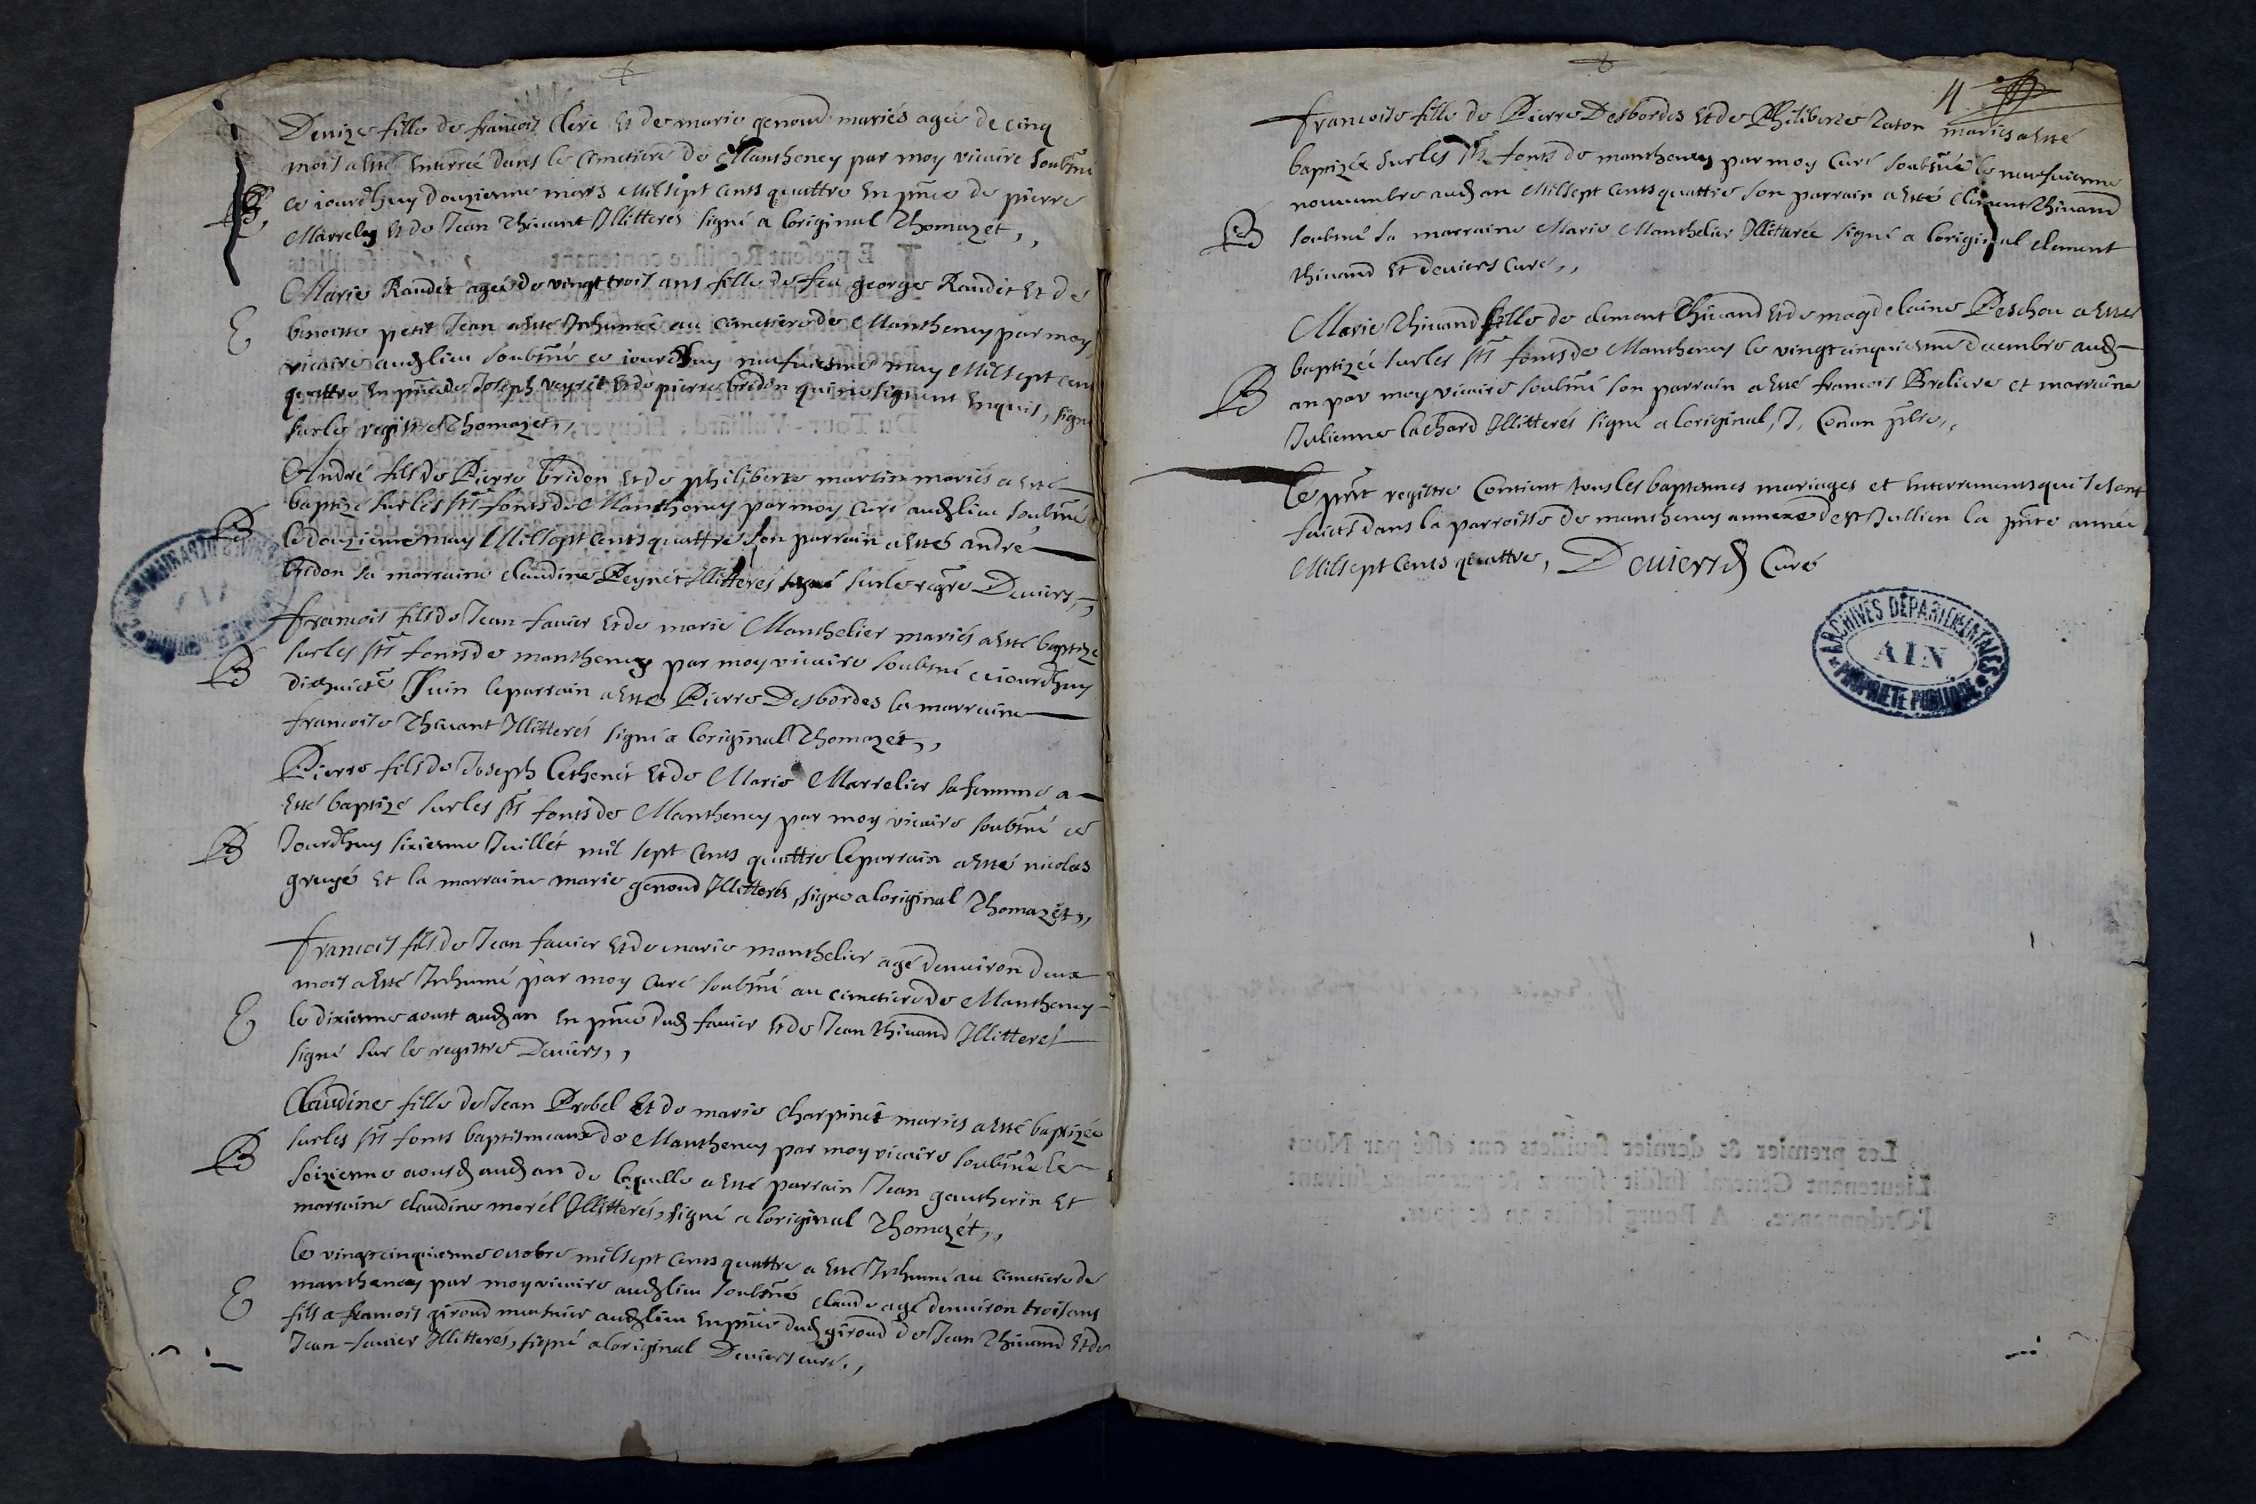 Denize fille de francois Clerc Et de marie genoud mariés agée de cinq
mois a Esté Enterrée dans le Cimetiere de Mantheney par moy vicaire soubsné
B, ce iourdhuy douzieme mars Mil sept cents quattre En pnce de pierre
Marrelly Et de Jean Thivant Illitterés signé a loriginal Thomazet,,
Marie Randet agée de vingt trois ans fille de feu george Randet Et de
E benoitte petit Jean a esté Inhumée au cimetiere de Mantheney par moy
vicaire audt lieu soubsné ce iourdhuy neufuiesme may Mil sept cent
quattre En pnce de Joseph veyret Et de pierre bridon qui ne signent Enquis, signé
sur le registre Thomazet,,
André fils de Pierre bridon Et de philiberte martin mariés a Esté
baptizé sur les sts fonts de Mantheney par moy Curé audt lieu soubsné
B le douzieme may Mil sept cents quattre son parrain a Esté andré
bridon sa marraine claudine Peynét Illitterés signé sur le regre Deviers,,
francois fils de Jean favier Et de marie Manthelier mariés a Esté baptizé
sur les sts fonts de mantheney par moy vicaire soubsné ce iourdhuy
B dixhuicte Juin le parrain a Esté Pierre Desbordes la marraine
francoise Thivant Illitterés signé a loriginal Thomazet,,
Pierre fils de Joseph Cethenét Et de Marie Marrelier sa femme a
Esté baptizé sur les sts fonts de Mantheney par moy vicaire soubsné ce
B Jourdhuy sixieme Juillét mil sept cents quattre le parrain a Esté nicolas
gruyé Et la marraine marie genoud Illitterés, signé a loriginal Thomazét,,
francois fils de Jean favier Et de marie manthelier agé denviron deux
mois a Esté Inhumé par moy Curé soubsné au cimetiere de Mantheney
E le dixieme aoust audt an En pnce dudt favier Et de Jean thivand Illitterés
signé sur le registre Deviers,,
Claudine fille de Jean Probel Et de marie Charpinét mariés a Esté baptizée
sur les sts fonts baptismeaux de Mantheney par moy vicaire soubsné le
B seizieme aoust audt an de laquelle a Esté parrain Jean gautherin Et
marraine claudine morél Illitterés, signé a loriginal Thomazét,,
le vingt cinquieme octobre mil sept cents quattre a Esté Inhumé au cimetiere de
mantheney par moy vicaire audt lieu soubsné claude agé denviron trois ans
E fils a francois giroud munier audt lieu En pnce dudt giroud de Jean Thivand Et de
Jean favier Illitterés, signé a loriginal Deviers curé,,
4
francoise fille de Pierre Desbordes Et de Philiberte Taton mariés a Esté
baptizée sur les sts fonts de mantheney par moy Curé soubsné le neufuieme
novembre audt an Mil sept cents quattre son parrain a Esté Clement Thivand
B soubsné sa marraine Marie Manthelier Illiterée signé a loriginal clement
thivand Et deviers Curé,,
Marie Thivand fille de clement Thivand Et de magdelaine Peschou a Esté
baptizée sur les sts fonts de Mantheney le vingt cinquieme decembre audt
B an par moy vicaire soubsné son parrain a Esté francois Breliere et marraine
Julienne Cachard Illitterés signé a loriginal, J. Conan ptre,,
Ce pnt registre Contient tous les baptemes mariages et Enterrements qui se sont
faicts dans la parroisse de mantheney annexe de st Jullien la pnte année
Mil sept cents quattre, Deviers Curé
ARCHIVES DÉPARTEMENTALES
AIN
PROPRIÉTÉ PUBLIQUE